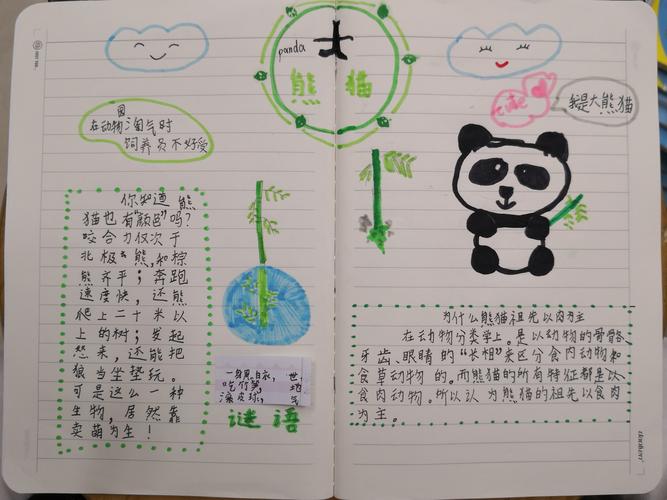 panda
大
熊猫
园
在动物淘气时
饲养员不好受
我是大熊猫
你知道熊
猫也有"颜色"吗?
咬合力仅次于
北极熊,和棕
熊齐平;奔跑
速度快,还能
爬上二十米以
上的树;发起
怒来,还能把
狼当坐垫玩。
可是这么一种
生物,居然靠
卖萌为生!
一身黑白衣,
吃竹笋,
谜语
为什么熊猫祖先以肉为主
在动物分类学上。是以动物的骨骼、
牙齿、眼睛的"长相"来区分食肉动物和
食草动物的。而熊猫的所有特征都是以
食肉动物。所以认为熊猫的祖先以食肉
为主。